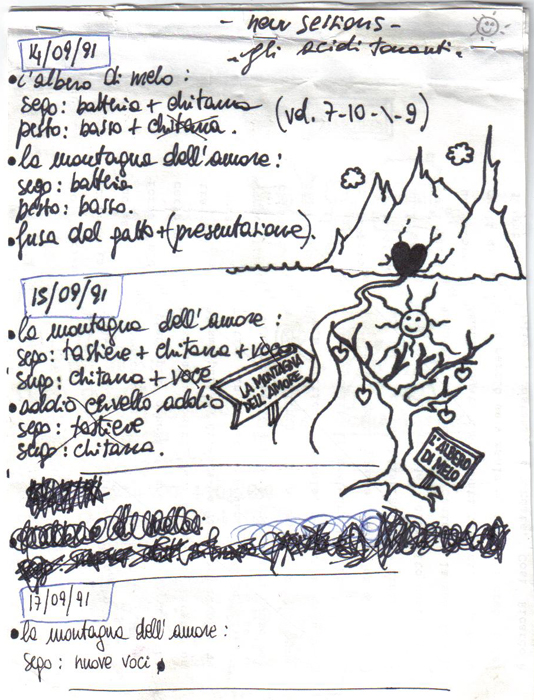 - new sessions -
"gli acidi tonanti".
14/09/91
• l'albero di melo:
sego: batteria + chitarra
pesto: basso + chitarra. (vel. 7-10-\-9)
• la montagna dell'amore:
sego: batteria
pesto: basso.
• fusa dal gatto + (presentazione).
15/09/91
• la montagna dell'amore:
sego: tastiere + chitarra + voce
sugo: chitarra + voce
• addio cervello addio
sego: tastiere
sugo: chitarra.
LA MONTAGNA
DELL'AMORE
L'ALBERO
DI MELO
17/09/91
• la montagna dell'amore:
sego: nuove voci.